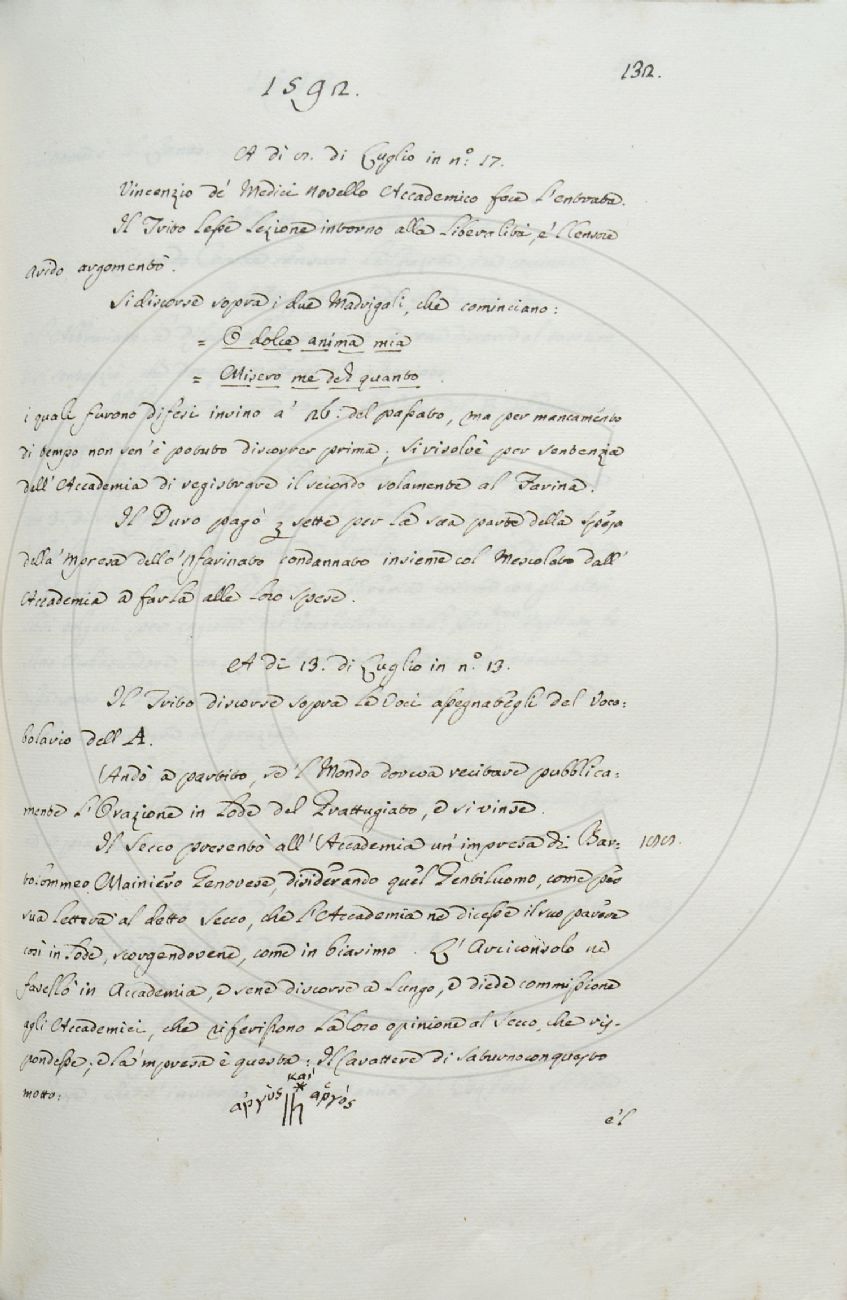 132.
1592.
A dì 2. di Luglio in n.º 17.
Vincenzio de' Medici Novello Accademico fece l'entrata.
Il Trito lesse lezione intorno alla liberalità, e 'l Censore
Arido argomentò.
Si discorse sopra i due Madrigali, che cominciano:
= O dolce anima mia
= Misero me del quanto.
i quali furono difesi insino a' 26: del passato, ma per mancamento
di tempo non sen'è potuto discorrer prima; si risolvè per sentenzia
dell'Accademia di registrare il secondo solamente al Farina.
Il Duro pagò sette per la sua parte della spesa
della 'mpresa dello 'Nfarinato condannato insieme col Mescolato dall'
Accademia a farla alle loro spese.
A dì 13. di Luglio in n.º 13.
Il Trito discorse sopra le Voci assegnategli del Voca=
bolario dell A.
Andò a partito, se 'l Mondo doveva recitare pubblica=
mente l'Orazione in lode del Grattugiato, e si vinse.
Il Secco presentò all'Accademia un'impresa di Bar=
tolommeo Mainiero Genovese, disiderando quel Gentiluomo, come per
sua lettera al detto Secco, che l'Accademia ne dicesse il suo parere
così in lode, scorgendovene, come in biasimo. L'Arciconsolo ne
favellò in Accademia, e sene discorse a lungo, e diede commissione
agli Accademici, che riferissono la loro opinione al Secco, che ris=
pondesse; e la 'mpresa è questa: Il Carattere di Saturno con questo
motto: ἀργὸς καὶ ἀργός
e 'l